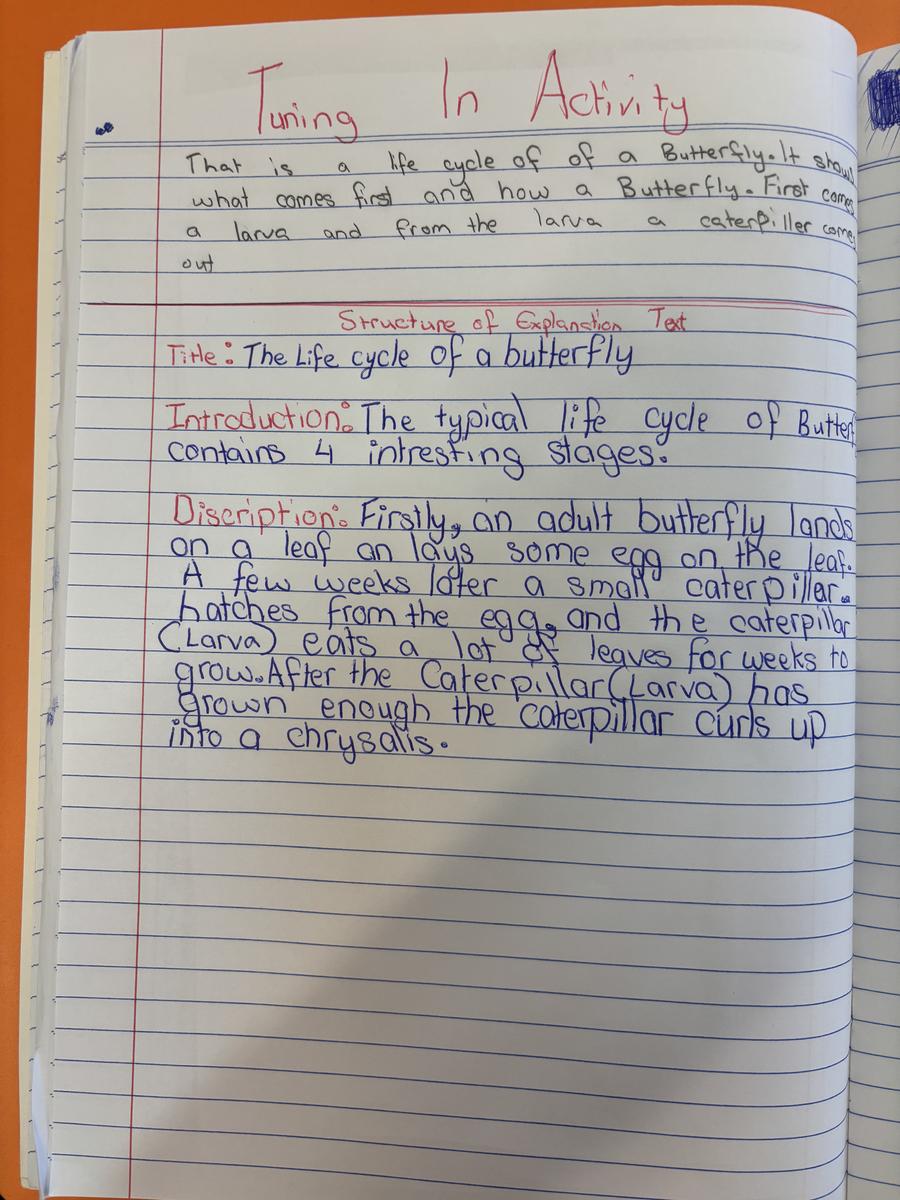 Tuning In Activity
That is a life cycle of of a Butterfly. It shows
what comes first and how a Butterfly. First comes
a larva and from the larva a caterpiller comes
out
Structure of Explanation Text
Title: The Life cycle of a butterfly
Introduction: The typical life cycle of Butterf
contains 4 intresting stages.
Discription: Firstly, an adult butterfly lands
on a leaf an lays some egg on the leaf.
A few weeks later a small caterpillar
hatches from the egg, and the caterpillar
(Larva) eats a lot of leaves for weeks to
grow. After the Caterpillar (Larva) has
grown enough the caterpillar curls up
into a chrysalis.